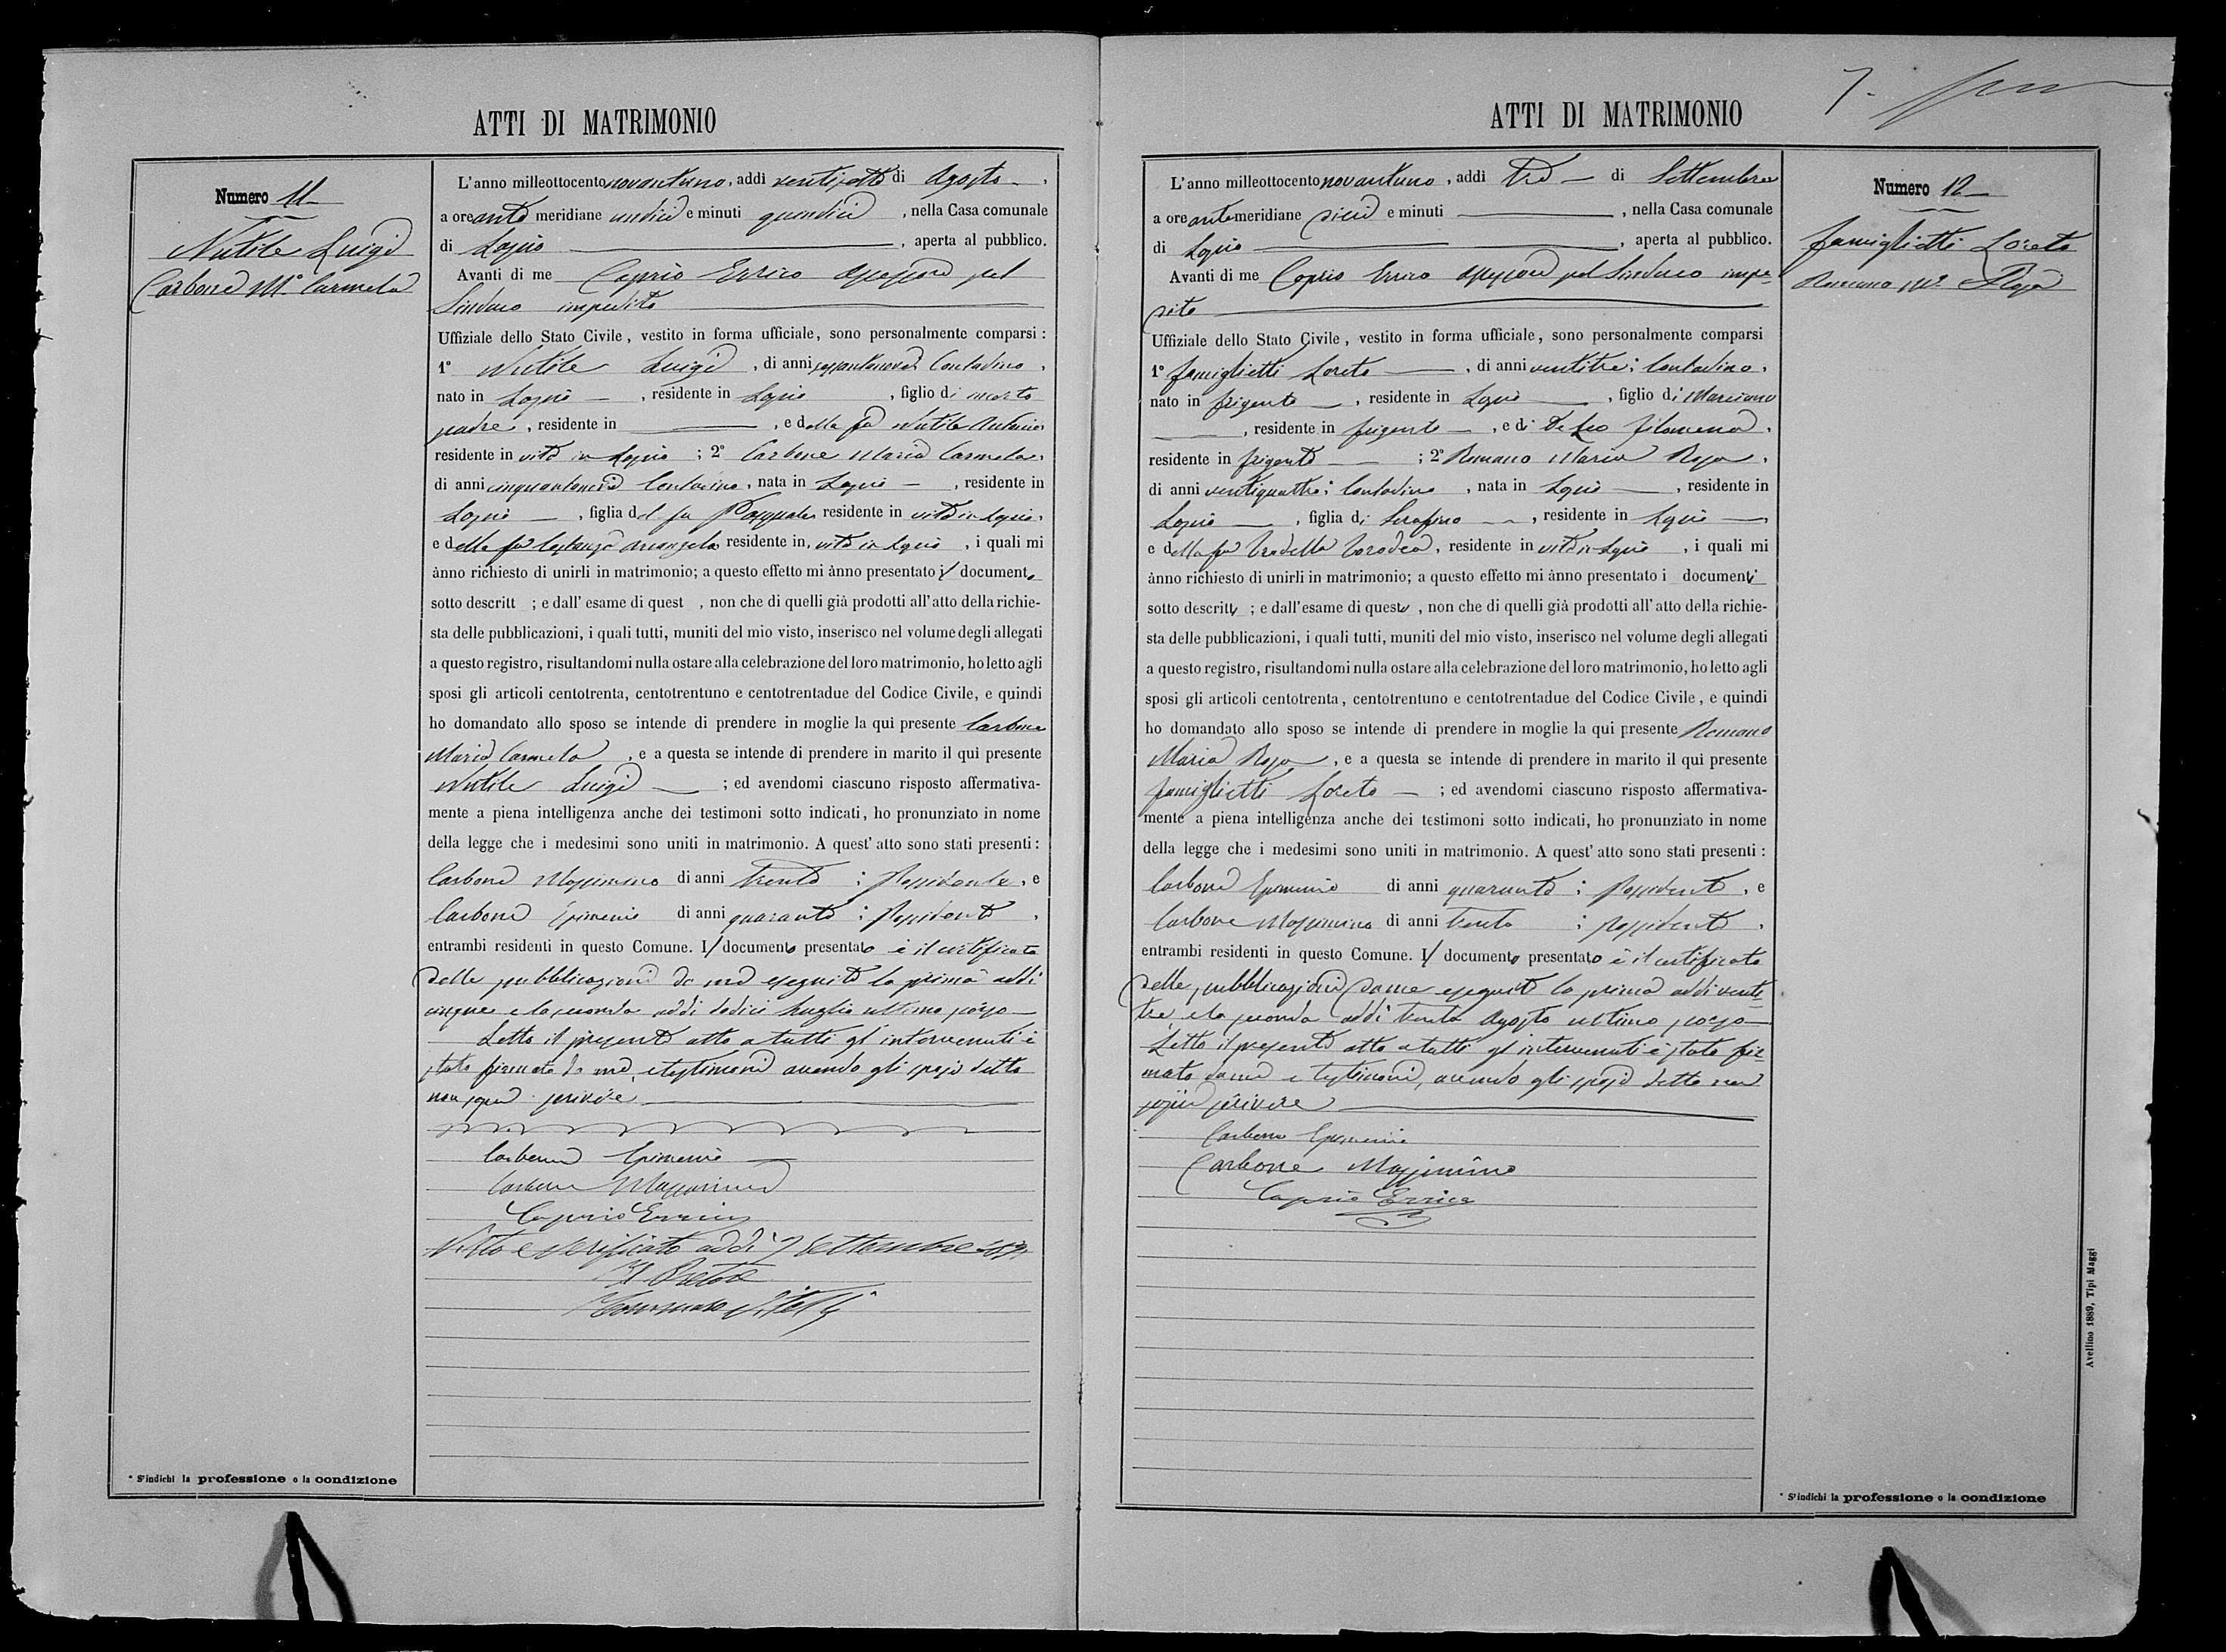 ATTI DI MATRIMONIO
Numero 11
Nutile Luigi
Carbone M.a Carmela
L'anno milleottocentonovantuno, addi ventisette di Agosto,
a ore ante meridiane undici e minuti quindici, nella Casa comunale
di Luogo, aperta al pubblico.
Avanti di me Caprio Errico Assessore pel
Sindaco impedito
Uffiziale dello Stato Civile, vestito in forma ufficiale, sono personalmente comparsi:
1° Nutile Luigi, di anni Contadino,
nato in, residente in, figlio di incerto
padre, residente in, e della fu Nutile Antonia
residente in vita in; 2° Carbone Maria Carmela,
di anni Contadina, nata in, residente in
, figlia del fu Pasquale residente in vita in,
e della fu Arcangela residente in, vita in, i quali mi
ànno richiesto di unirli in matrimonio; a questo effetto mi ànno presentato i/ documento
sotto descritt; e dall'esame di quest, non che di quelli già prodotti all'atto della richie-
sta delle pubblicazioni, i quali tutti, muniti del mio visto, inserisco nel volume degli allegati
a questo registro, risultandomi nulla ostare alla celebrazione del loro matrimonio, ho letto agli
sposi gli articoli centotrenta, centotrentuno e centotrentadue del Codice Civile, e quindi
ho domandato allo sposo se intende di prendere in moglie la qui presente Carbone
Maria Carmela, e a questa se intende di prendere in marito il qui presente
Nutile Luigi; ed avendomi ciascuno risposto affermativa-
mente a piena intelligenza anche dei testimoni sotto indicati, ho pronunziato in nome
della legge che i medesimi sono uniti in matrimonio. A quest'atto sono stati presenti:
Carbone Massimino di anni trenta; Possidente, e
Carbone Epimenio di anni quaranta; Possidente,
entrambi residenti in questo Comune. I/ documento presentato è il certificato
delle pubblicazioni da me eseguite la prima addi
cinque e la seconda addi dodici Luglio ultimo scorso
Letto il presente atto a tutti gl'intervenuti è
stato firmato da me, e testimoni avendo gli sposi detto
non saper scrivere
Carbone Epimenio
Carbone Massimino
Caprio Errico
Visto e verificato addì 7 Settembre 1891
Il Pretore
* S'indichi la professione o la condizione
ATTI DI MATRIMONIO
7.
Numero 12
Famiglietti Loreto
Romano M.a Rosa
L'anno milleottocentonovantuno, addi tre di Settembre
a ore antemeridiane dieci e minuti, nella Casa comunale
di, aperta al pubblico.
Avanti di me Caprio Errico Assessore pel Sindaco impe-
dito
Uffiziale dello Stato Civile, vestito in forma ufficiale, sono personalmente comparsi
1° Famiglietti Loreto, di anni ventitre; Contadino,
nato in Frigento, residente in, figlio di Marciano
, residente in Frigento, e di De Leo Filomena,
residente in Frigento; 2° Romano Maria Rosa,
di anni ventiquattro; Contadina, nata in, residente in
, figlia di Serafino, residente in,
e della fu, residente in vita in, i quali mi
ànno richiesto di unirli in matrimonio; a questo effetto mi ànno presentato i documenti
sotto descritti; e dall'esame di questi, non che di quelli già prodotti all'atto della richie-
sta delle pubblicazioni, i quali tutti, muniti del mio visto, inserisco nel volume degli allegati
a questo registro, risultandomi nulla ostare alla celebrazione del loro matrimonio, ho letto agli
sposi gli articoli centotrenta, centotrentuno e centotrentadue del Codice Civile, e quindi
ho domandato allo sposo se intende di prendere in moglie la qui presente Romano
Maria Rosa, e a questa se intende di prendere in marito il qui presente
Famiglietti Loreto; ed avendomi ciascuno risposto affermativa-
mente a piena intelligenza anche dei testimoni sotto indicati, ho pronunziato in nome
della legge che i medesimi sono uniti in matrimonio. A quest'atto sono stati presenti:
Carbone Epimenio di anni quaranta; Possidente, e
Carbone Massimino di anni trenta; Possidente,
entrambi residenti in questo Comune. I/ documento presentato è il certificato
delle pubblicazioni da me eseguite la prima addi venti-
tre e la seconda addi trenta Agosto ultimo scorso
Letto il presente atto a tutti gl'intervenuti è stato fir-
mato da me e testimoni, avendo gli sposi detto non
saper scrivere
Carbone Epimenio
Carbone Massimino
Caprio Errico
Avellino 1889, Tipi Maggi
* S'indichi la professione o la condizione